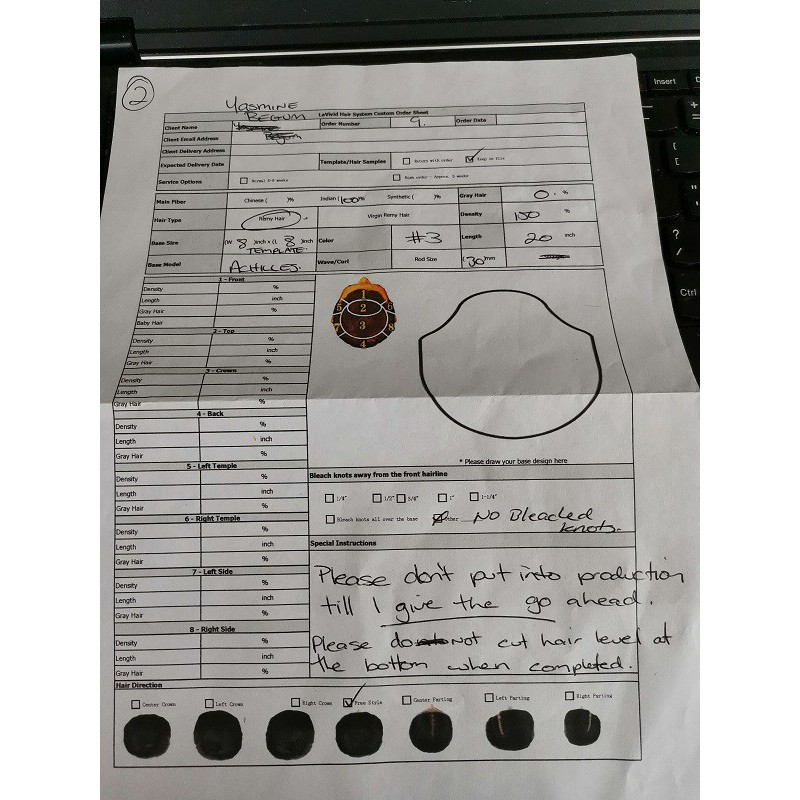 2
Yasmine
BEGUM
LaVivid Hair System Custom Order Sheet
Client Name
Order Number 9. Order Date
Client Email Address Begum
Client Delivery Address
Expected Delivery Date Template/Hair Samples Return with order Keep on file
Service Options Normal Rush order - Approx. weeks
Main Fiber Chinese ( )% Indian (100)% Synthetic ( )% Gray Hair 0. %
Hair Type Remy Hair Virgin Remy Hair Density 150 %
Base Size (W 8 )inch x (L 8 )inch Color #3 Length 20 inch
TEMPLATE.
Base Model ACHILLES. Wave/Curl Rod Size (30)mm
1 - Front
Density %
Length inch
Gray Hair %
Baby Hair
2 - Top
Density %
Length inch
Gray Hair %
3 - Crown
Density %
Length inch
Gray Hair %
4 - Back
Density %
Length inch
Gray Hair %
5 - Left Temple
Density %
Length inch
Gray Hair %
6 - Right Temple
Density %
Length inch
Gray Hair %
7 - Left Side
Density %
Length inch
Gray Hair %
8 - Right Side
Density %
Length inch
Gray Hair %
1
5 2 6
7 3 8
4
* Please draw your base design here
Bleach knots away from the front hairline
1/4" 1/2" 3/4" 1" 1-1/4"
Bleach knots all over the base Other No Bleached
knots.
Special Instructions
Please don't put into production
till I give the go ahead.
Please do not cut hair level at
the bottom when completed.
Hair Direction
Center Crown Left Crown Right Crown Free Style Center Parting Left Parting Right Parting
Insert
Ctrl